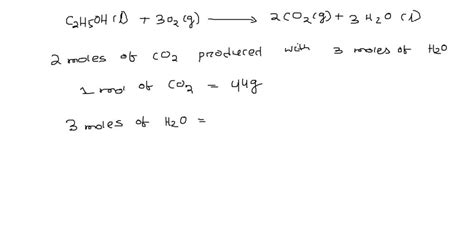 C2H5OH (l) + 3O2 (g) → 2CO2 (g) + 3 H2O (l)
2 moles of CO2 produced with 3 moles of H2O
1 mol of CO2 = 44g
3 moles of H2O =